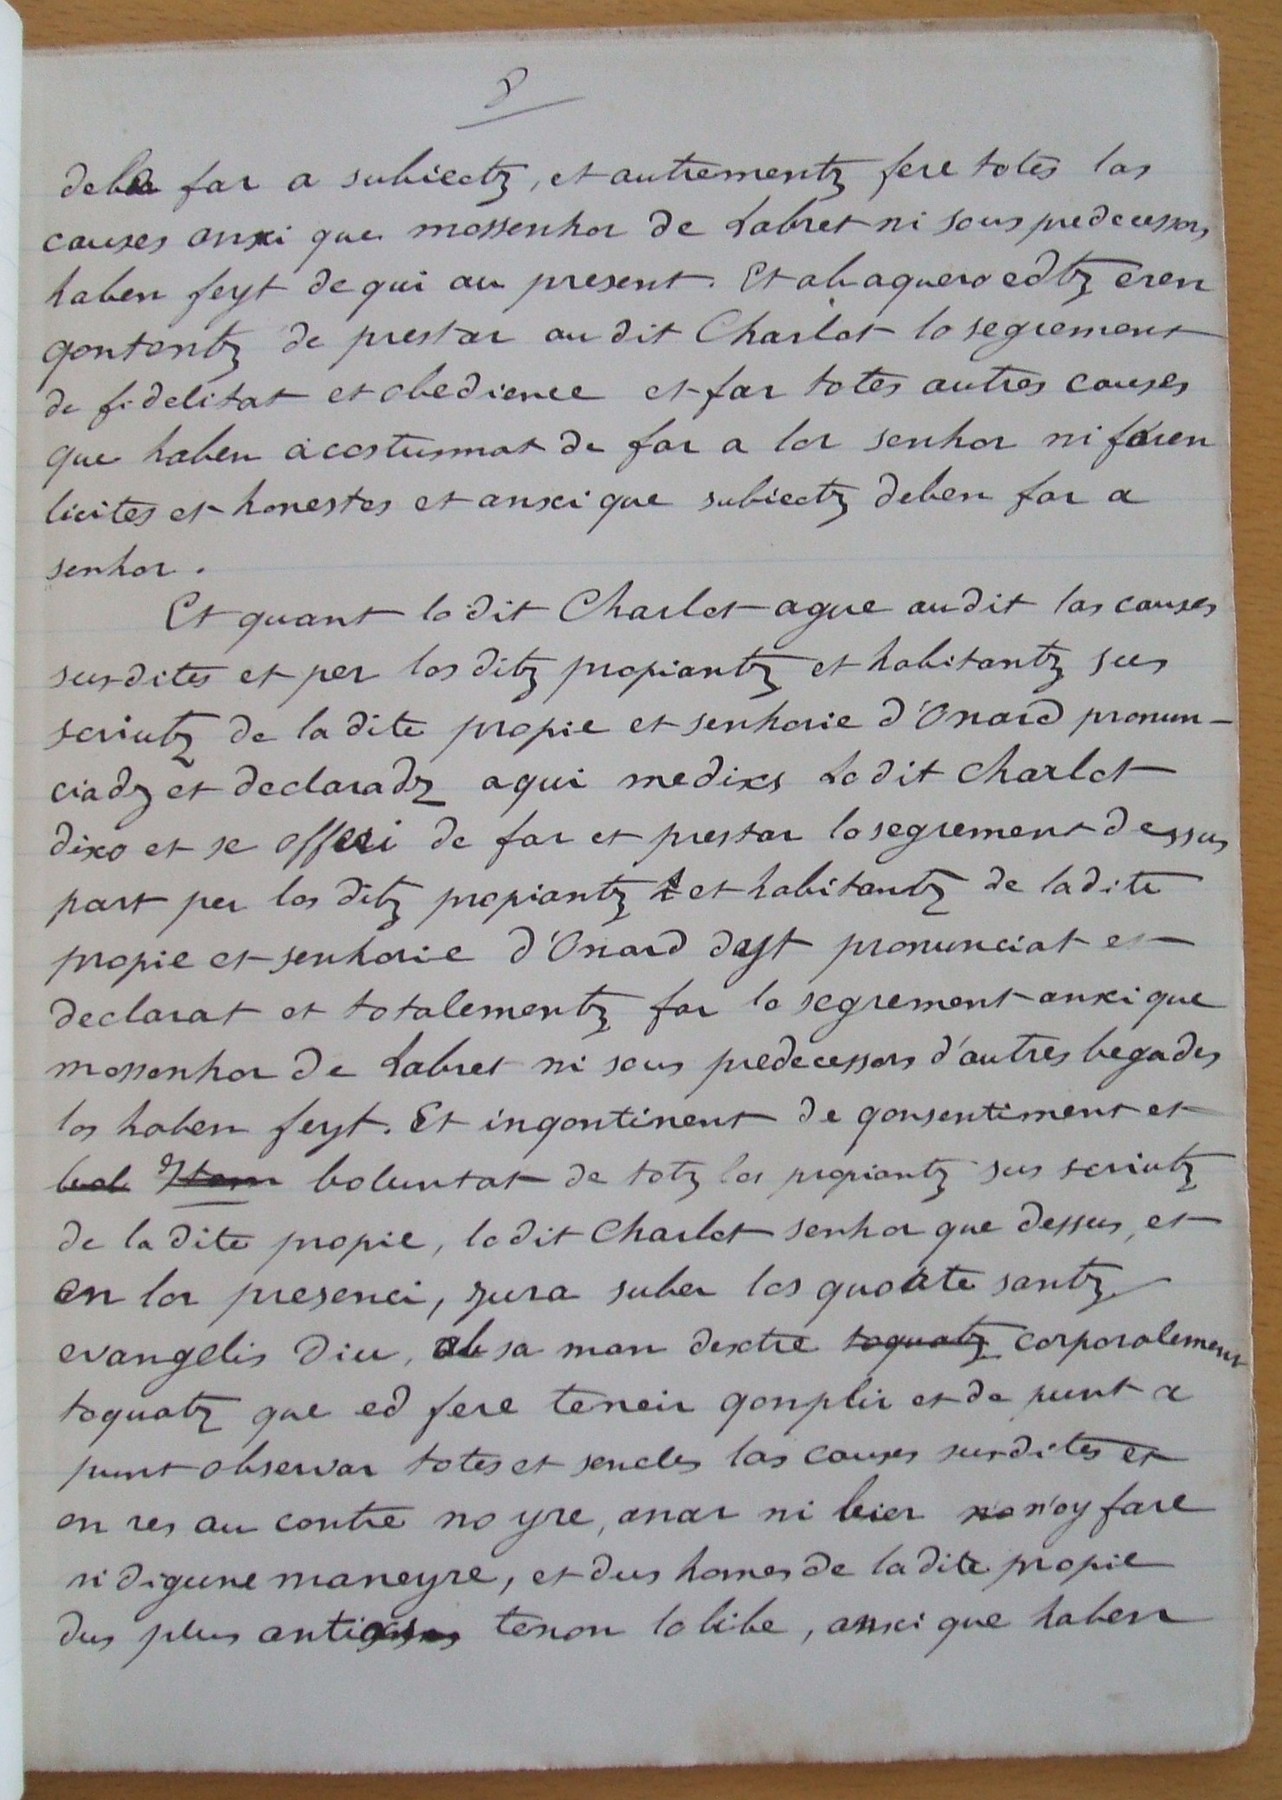 8
deben far a subiectz, et autrementz fere totes las
causes anxi que mossenhor de Labret ni sous predecessors
haben feyt de qui au present. Et ab aquero edtz eren
qontentz de prestar au dit Charlot lo segrement
de fidelitat et obedience et far totes autres causes
que haben acostumat de far a lor senhor ni faren
licites et honestes et anxi que subiectz deben far a
senhor.
Et quant lo dit Charlot ague audit las causes
susdites et per los ditz propiantz et habitantz sus
scriutz de la dite propie et senhorie d'Onard pronun-
ciadz et declaradz aqui medixs Lo dit Charlot
dixo et se offeri de far et prestar lo segrement dessus
part per los ditz propiantz et habitantz de la dite
propie et senhorie d'Onard dest pronunciat et
declarat et totalementz far lo segrement anxi que
mossenhor de Labret ni sous predecessors d'autres begades
los haben feyt. Et inqontinent de qonsentiment et
bol Item boluntat de totz los propiantz sus scriutz
de la dite propie, lo dit Charlot senhor que dessus, et
en lor presenci, jura suber los quoate santz
evangelis Diu, ab sa man dextre toquatz corporalement
toquatz que ed fere teneir qonplir et de punt a
punt observar totes et sencles las causes susdites et
en res au contre no yre, anar ni bier no n'oy fare
ni digune maneyre, et dus homes de la dite propie
dus plus antiques tenon lo libe, anxi que haben